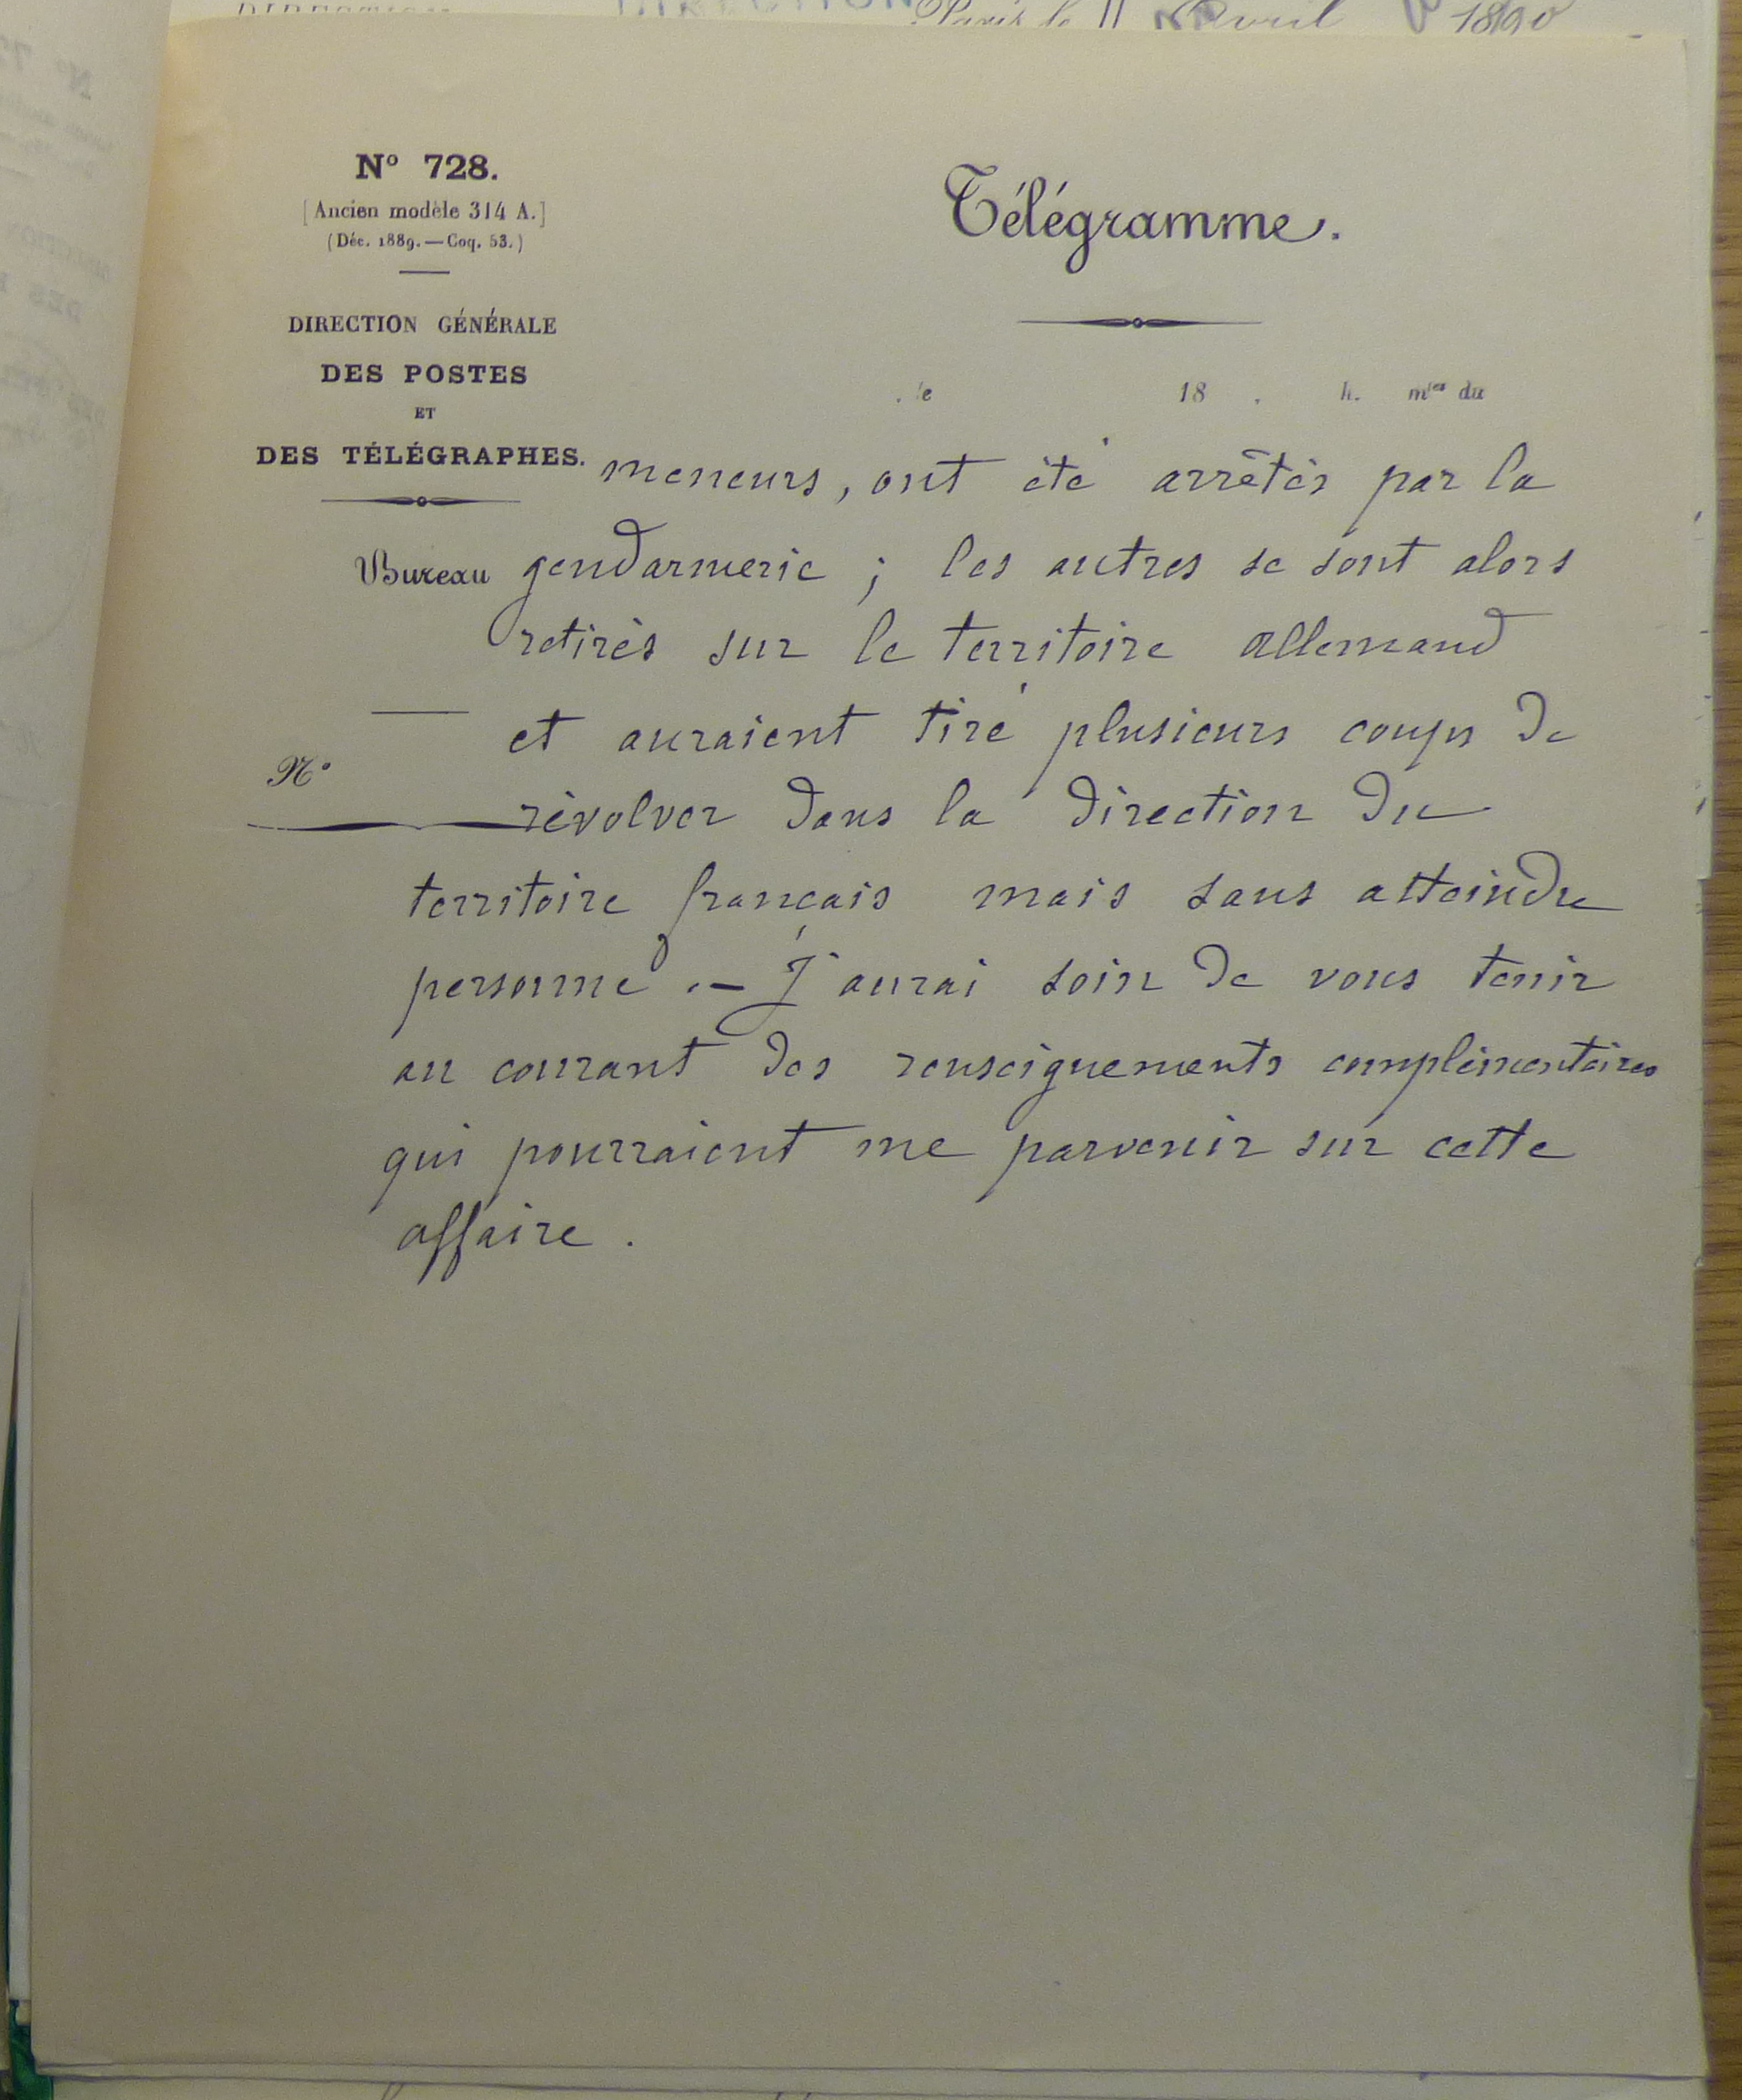 Paris le 11 Avril 1890
N° 728.
[Ancien modèle 314 A.]
(Déc. 1889. — Coq. 53.)
DIRECTION GÉNÉRALE
DES POSTES
ET
DES TÉLÉGRAPHES.
Bureau
N°
Télégramme.
, le 18 , h. mtes du
meneurs, ont été arrêtés par la
gendarmerie ; les autres se sont alors
retirés sur le territoire allemand
et auraient tiré plusieurs coups de
révolver dans la direction du
territoire français mais sans atteindre
personne . — J'aurai soin de vous tenir
au courant des renseignements complémentaires
qui pourraient me parvenir sur cette
affaire .